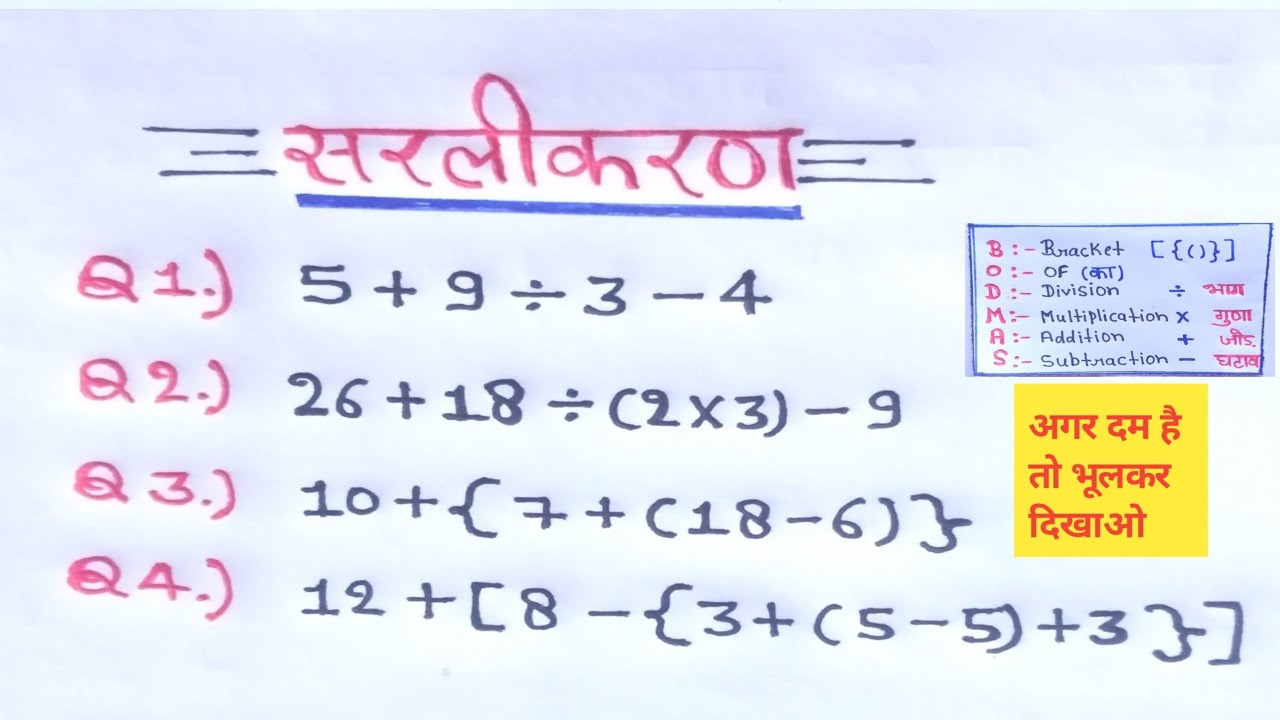 सरलीकरण
Q1.) 5 + 9 ÷ 3 - 4
Q2.) 26 + 18 ÷ (2 × 3) - 9
Q3.) 10 + { 7 + (18 - 6) }
Q4.) 12 + [ 8 - { 3 + (5 - 5) + 3 } ]
B :- Bracket [{()}]
O :- OF (का)
D :- Division ÷ भाग
M :- Multiplication × गुणा
A :- Addition + जोड़
S :- Subtraction - घटाव
अगर दम है
तो भूलकर
दिखाओ